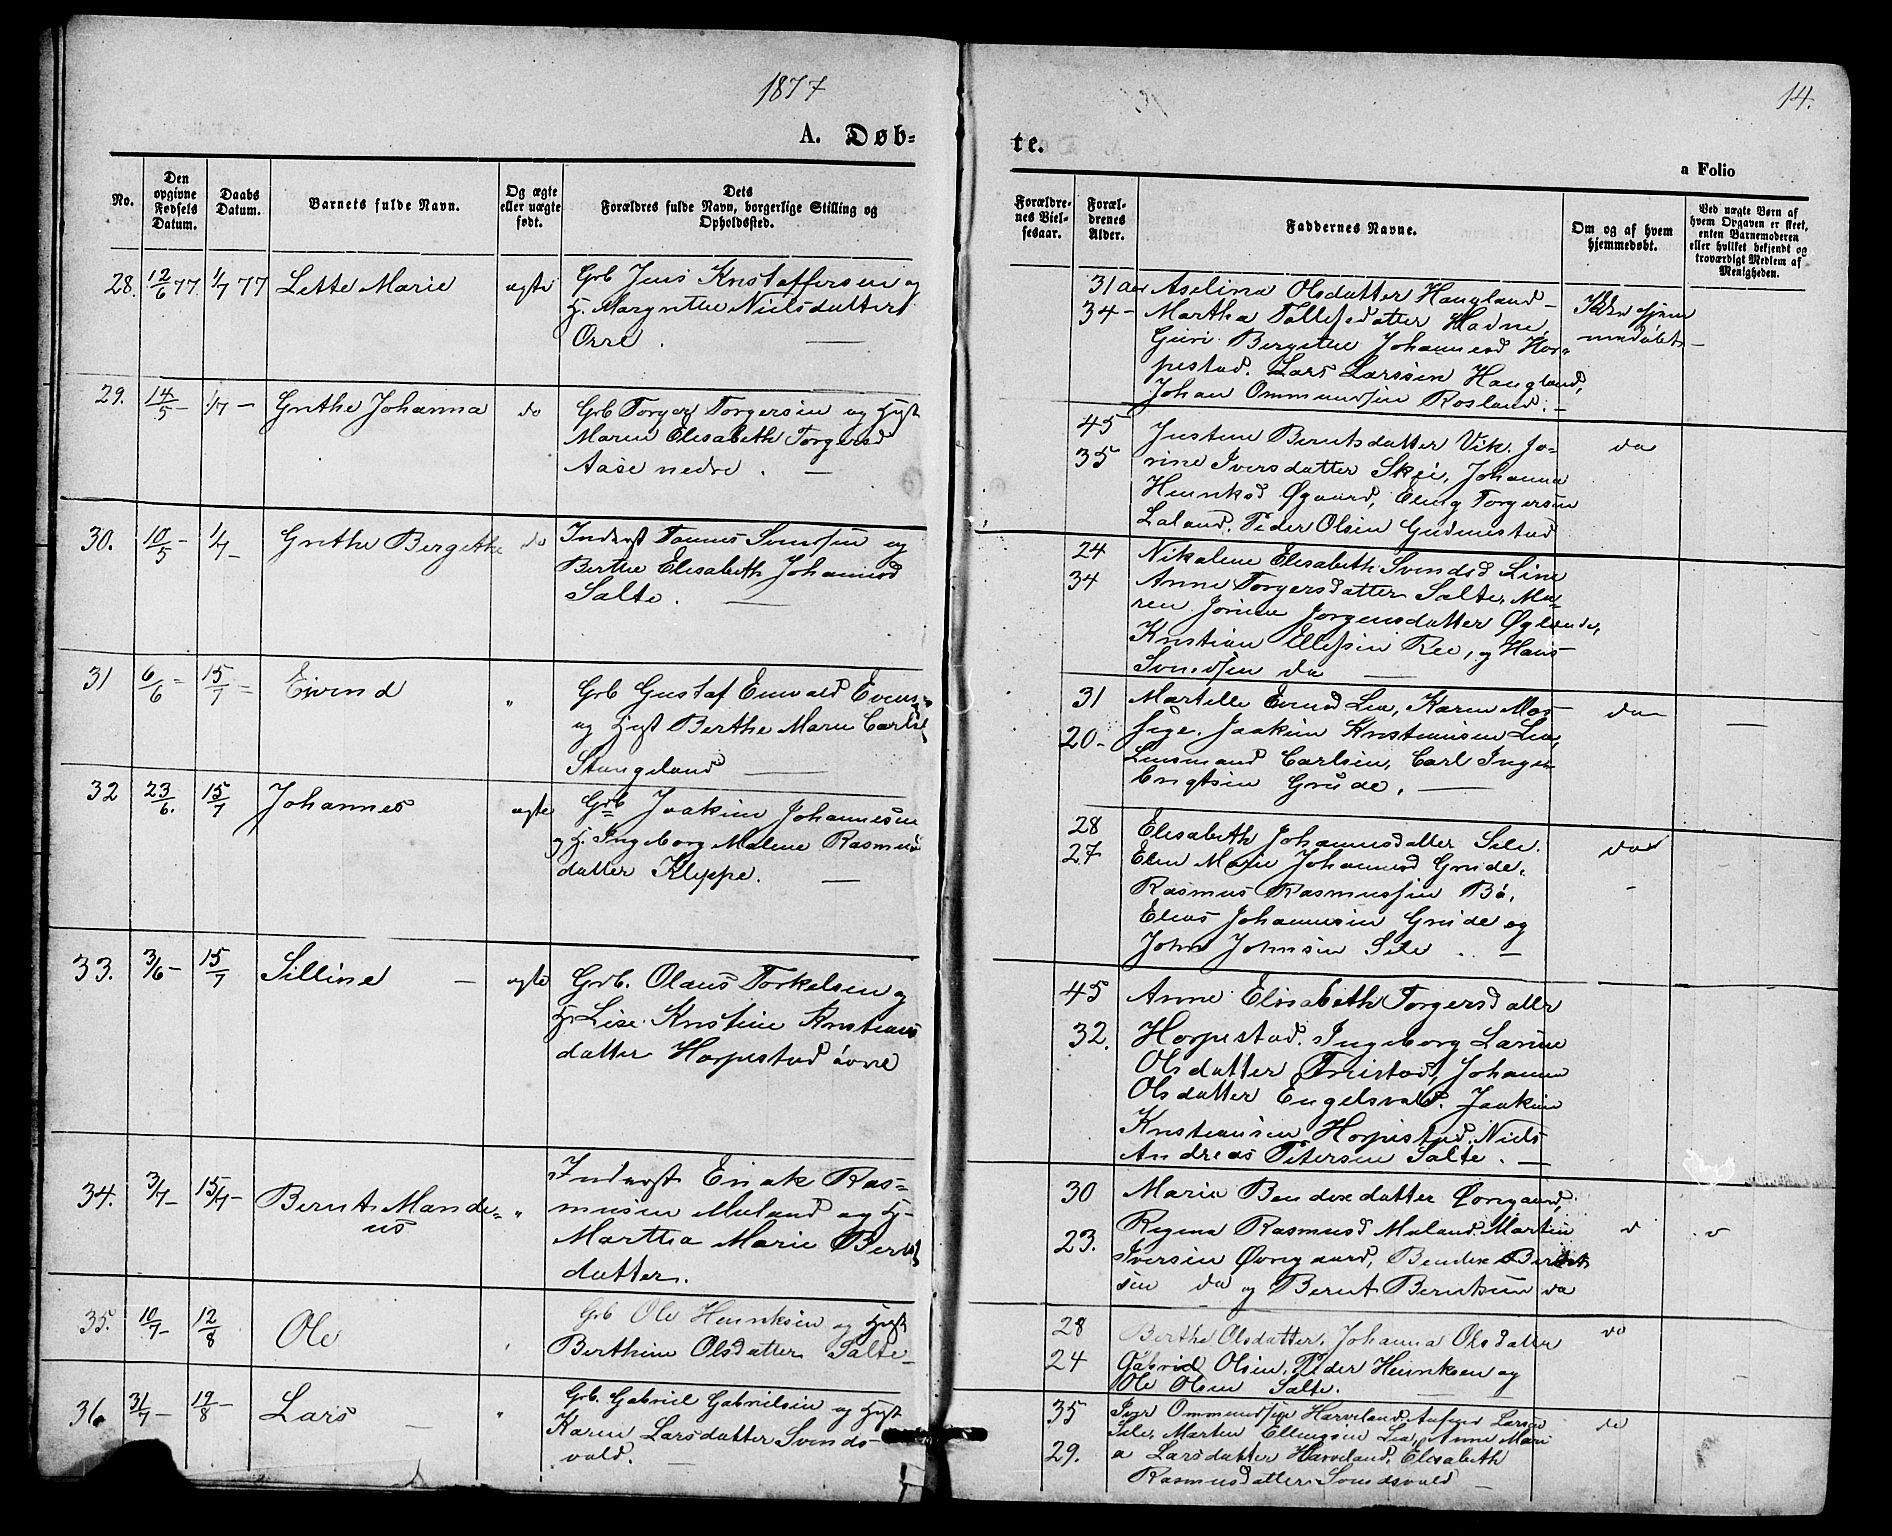 1877
14.
A. Døb-
te.
a Folio
No.
Den
opgivne
Fødsels
Datum.
Daabs
Datum.
Barnets fulde Navn.
Og ægte
eller uægte
født.
Dets
Forældres fulde Navn, borgerlige Stilling og
Opholdssted.
Forældre-
nes Viel-
sesaar.
Foræl-
drenes
Alder.
Faddernes Navne.
Om og af hvem
hjemmedøbt.
Ved uægte Børn af
hvem Opgaven er skeet,
enten Barnemoderen
eller hvilket bekjendt og
troværdigt Medlem af
Menigheden.
28. 12/6 77. 1/7 77 Lette Marie ægte Grb Jens Kristoffersen og
H. Margrethe Nielsdatter
Orre. —
31 aar
34 –
Aselina Olsdatter Haugland –
Martha Tollefsdatter Hadne,
Guri Bergitte Johannesd Hor-
pestad. Lars Larssen Haugland,
Johan Ommundsen Rosland. –
Ikke hjem
medøbt –
29. 14/5 – 1/7 – Grethe Johanna do Grb Torger Torgersen og Hust
Maren Elisabeth Torgersd
Aase nedre. —
45
35
Justine Berntsdatter Vik. Jo-
rine Iversdatter Skei, Johanna
Henriksd Øgaard, Eling Torgersen
Laland. Peder Olsen Gudmestad
do
30. 10/5 – 1/7 – Grethe Bergethe do Inderst Tønnes Svendsen og
Berthe Elisabeth Johannesd
Salte. —
24
34
Nikoline Elisabeth Svendsd Line
Anne Torgersdatter Salte, Ma-
ren Jorine Jørgensdatter
Kristian Ellefsen Ree, og Hans
Svendsen do —
31 6/6 = 15/7 = Eivind " Grb Gustaf Enevald
og Hust Berthe Marie Carlsd
Stangeland —
31
20 –
Martille Eivindsd Lea, Karen Mos-
sige. Joakim Kristiansen Lea,
Lensmand Carlsen, Carl Inge-
brigtsen Grude. —
do –
—
32 23/6. 15/7 Johannes ægte Grb Joakim Johannesen
og H. Ingeborg Malene Rasmus
datter Kleppe. —
28
27
Elisabeth Johannesdatter Sele.
Elen Marie Johannesd Grude.
Rasmus Rasmussen Bø.
Elias Johannesen Grude og
John Johnsen Sele . . –
do
–
33. 3/6 – 15/7 Silline — ægte Grb. Olaus Torkelsen og
H. Lise Kristine Kristians
datter Horpestad øvre
45
32.
Anne Elisabeth Torgersdatter
Horpestad. Ingeborg Larine
Olsdatter Friestad, Johanna
Olsdatter Engelsvold. Joakim
Kristiansen Horpestad. Niels
Andreas Petersen Salte. —
34. 3/7 – 15/7 – Bernt Mande-
us " Inderst Enok Ras-
musen Meland og H.
Martha Marie Bernts
datter.
30
23.
Maria Bendixdatter Øvregaard,
Regina Rasmusd Meland. Martin
Iversen Øvregaard, Bendix Bernt-
sen do og Bernt Berntsen do
35. 10/7 – 12/8 Ole Grb Ole Henriksen og Hust
Berthine Olsdatter Salte –
28
24
Berthe Olsdatter, Johanna Olsdatter
Gabriel Olsen, Peder Henriksen og
Ole Olsen Salte. —
do
36 31/7 – 19/8 – Lars — " Grb. Gabriel Gabrielsen og Hust
Karen Larsdatter Svends-
vold. —
35
29.
Iver Ommundsen Harveland. Larsen
Sele, Martin Ellingsen Lea, Anne Mari
a Larsdatter Harveland, Elisabeth
Rasmusdatter Svendsvold —
do